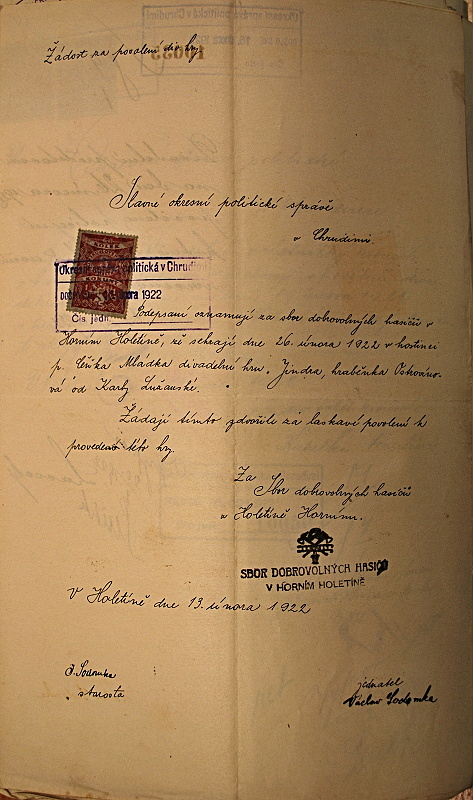 Žádost za povolení div. hry
Slavné okresní politické správě
v Chrudimi
Okresní správa politická v Chrudimi
února 1922
Čís. jedn.
Podepsaní oznamují za sbor dobrovolných hasičů v
Horním Holetíně, že sehrají dne 26. února 1922 v hostinci
p. Čeňka Mládka divadelní hru „Jindra, hraběnka Ostrovíno-
vá od Karly Lužanské.
Žádají tímto zdvořile za laskavé povolení k
provedení této hry.
Za
Sbor dobrovolných hasičů
v Holetíně Horním.
SBOR DOBROVOLNÝCH HASIČŮ
V HORNÍM HOLETÍNĚ
V Holetíně dne 13. února 1922
J. Sodomka
starosta
jednatel
Václav Sodomka